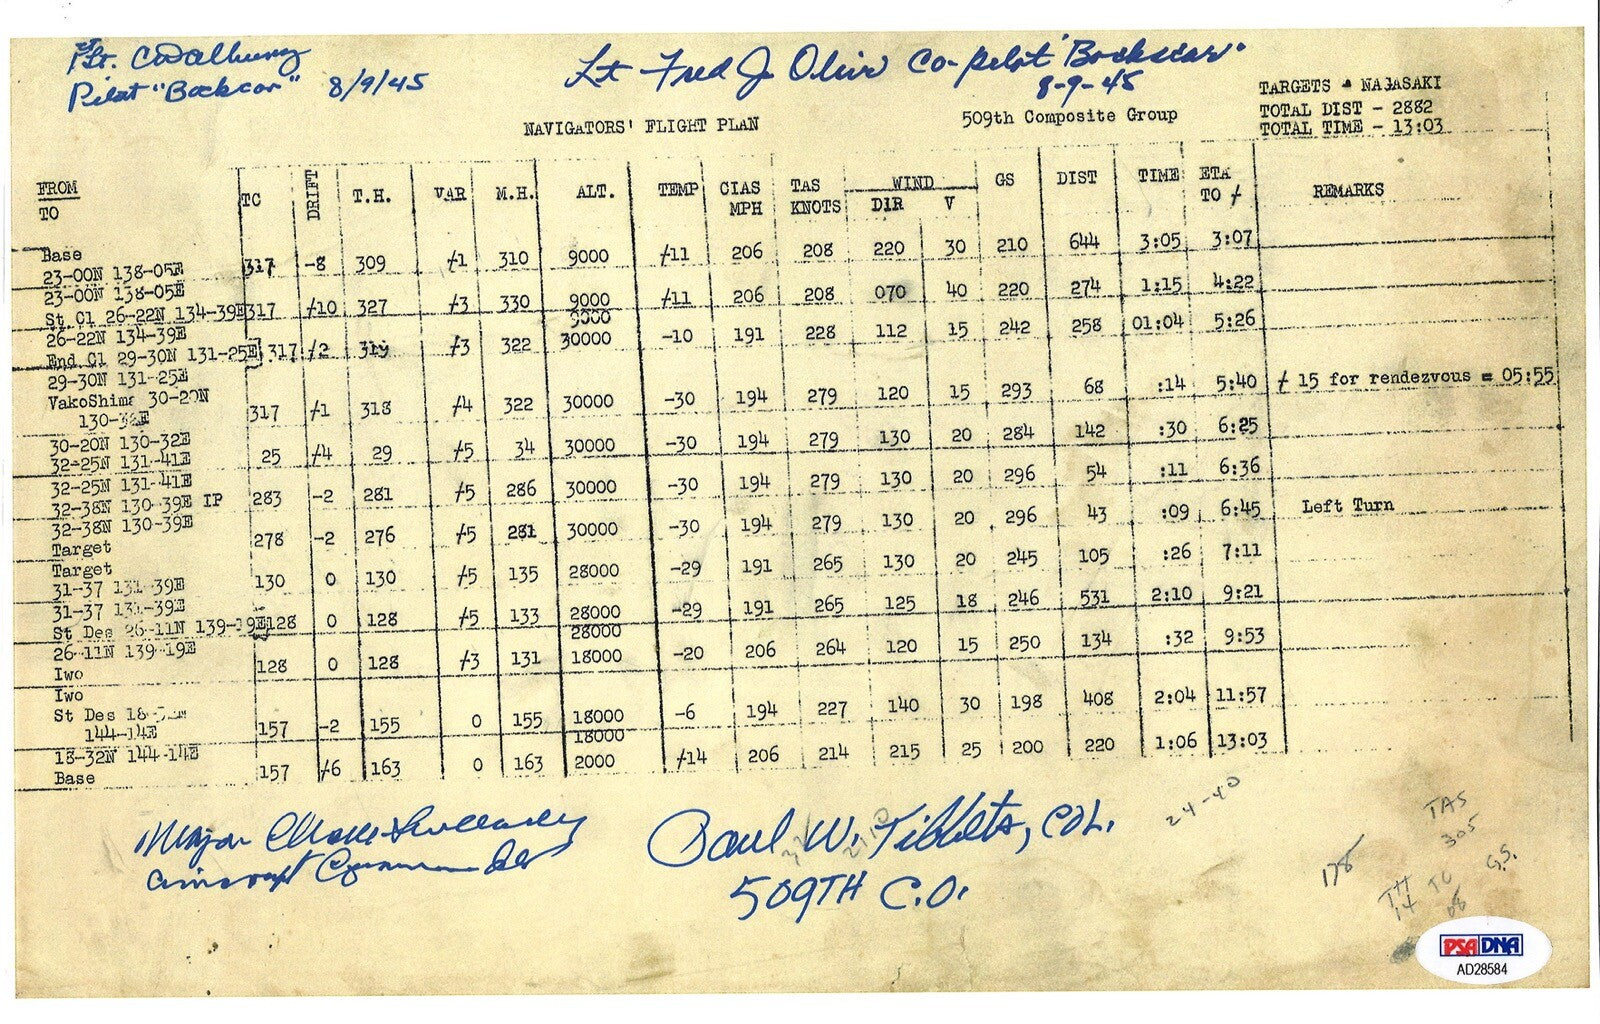 1st Lt. CDAlbury
Pilot "Bockscar" 8/9/45
Lt Fred J Olivi Co-Pilot "Bockscar"
8-9-45
TARGETS - NAGASAKI
TOTAL DIST - 2882
TOTAL TIME - 13:03
NAVIGATORS' FLIGHT PLAN
509th Composite Group
FROM
TO
TC DRIFT T.H. VAR M.H. ALT. TEMP CIAS MPH TAS KNOTS WIND DIR V GS DIST TIME ETA TO / REMARKS
Base
23-00N 138-05E 317 -8 309 /1 310 9000 /11 206 208 220 30 210 644 3:05 3:07
23-00N 138-05E
St Cl 26-22N 134-39E 317 /10 327 /3 330 9000 /11 206 208 070 40 220 274 1:15 4:22
26-22N 134-39E 9000
End Cl 29-30N 131-25E 317 /2 319 /3 322 30000 -10 191 228 112 15 242 258 01:04 5:26
29-30N 131-25E
VakoShima 30-20N
130-32E 317 /1 318 /4 322 30000 -30 194 279 120 15 293 68 :14 5:40 / 15 for rendezvous = 05:55
30-20N 130-32E
32-25N 131-41E 25 /4 29 /5 34 30000 -30 194 279 130 20 284 142 :30 6:25
32-25N 131-41E
32-38N 130-39E IP 283 -2 281 /5 286 30000 -30 194 279 130 20 296 54 :11 6:36
32-38N 130-39E
Target 278 -2 276 /5 281 30000 -30 194 279 130 20 296 43 :09 6:45 Left Turn
Target
31-37 131-39E 130 0 130 /5 135 28000 -29 191 265 130 20 245 105 :26 7:11
31-37 131-39E
St Des 26-11N 139-19E 128 0 128 /5 133 28000 -29 191 265 125 18 246 531 2:10 9:21
26-11N 139-19E 28000
Iwo 128 0 128 /3 131 18000 -20 206 264 120 15 250 134 :32 9:53
Iwo
St Des 18-
144-14E 157 -2 155 0 155 18000 -6 194 227 140 30 198 408 2:04 11:57
18-32N 144-14E 18000
Base 157 /6 163 0 163 2000 /14 206 214 215 25 200 220 1:06 13:03
Major Charles Sweeney
Aircraft Commander
Paul W. Tibbets, COL.
509TH C.O.
24-40
178
TAS
305
G.S.
TH TC
14
PSA DNA
AD28584